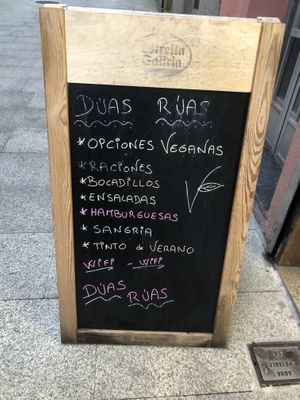 Estrella
Galicia
DUAS RÚAS
* OPCIONES VEGANAS
* RACIONES
* BOCADILLOS
* ENSALADAS
* HAMBURGUESAS
* SANGRIA
* TINTO de VERANO
WIFI - WIFI
DÚAS
RÚAS